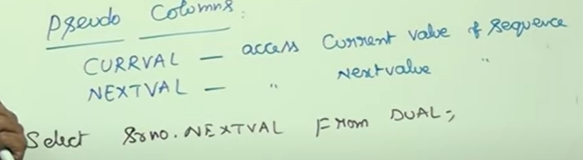 Pseudo Columns:
CURRVAL — access Current value of sequence
NEXTVAL — " Nextvalue "
Select Srno.NEXTVAL From DUAL;